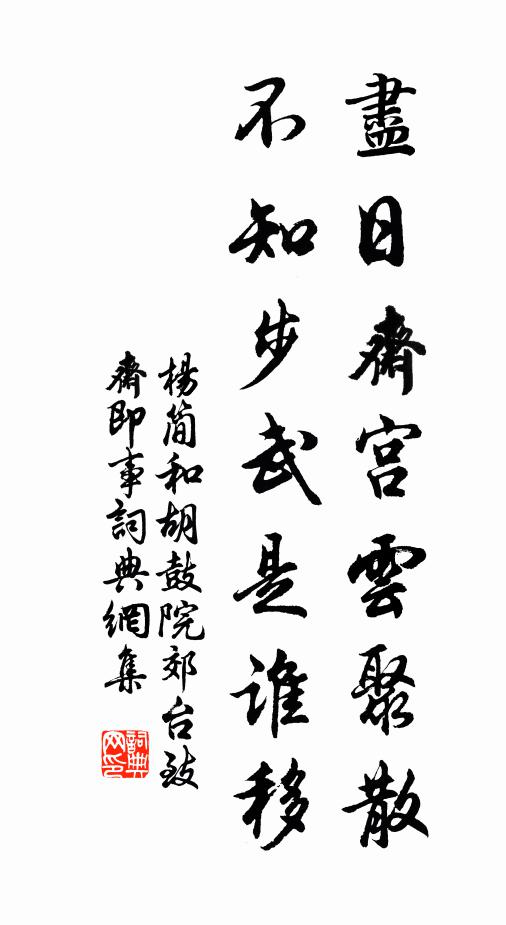 盡日齋宮雲聚散
不知步武是誰移
楊简和胡鼓院郊台致
齋即事詞典網集
詞典網印